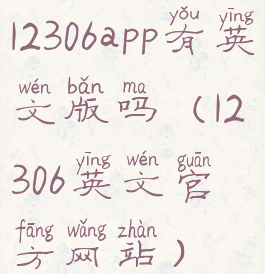 yǒu yīng
12306app有英
wén bǎn ma
文版吗（12
yīng wén guān
306英文官
fāng wǎng zhàn
方网站）